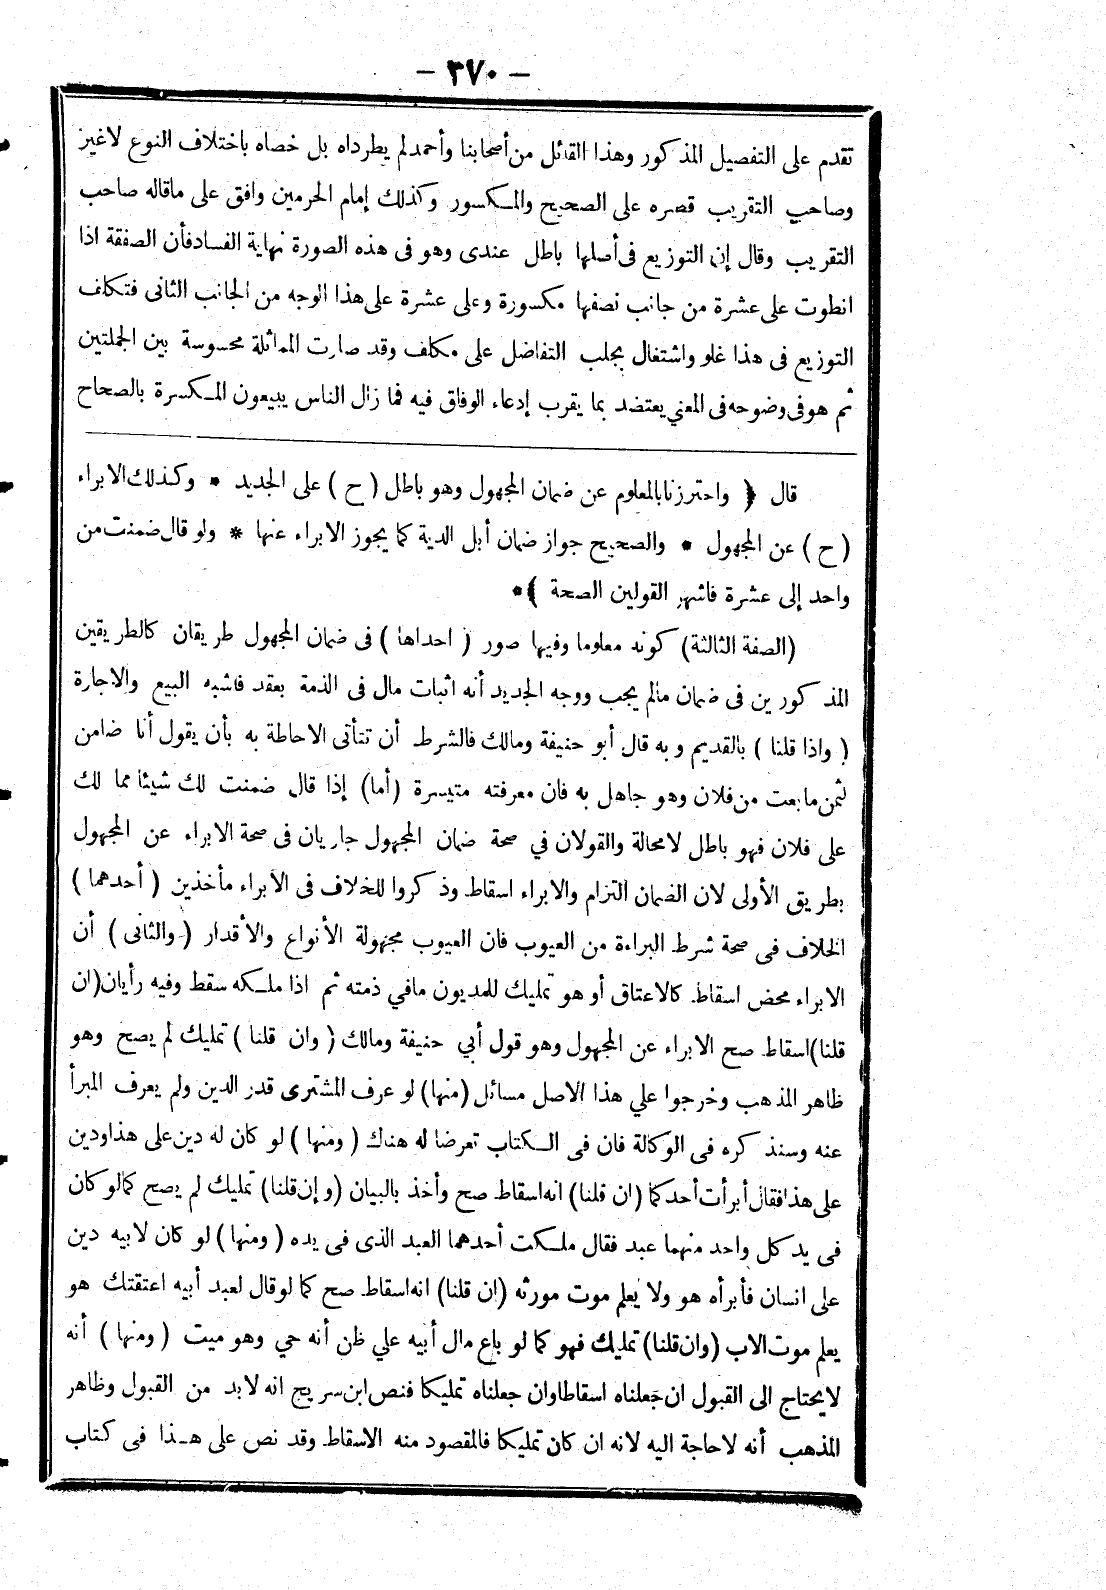 - ٣٧٠ -
تقدم على التفصيل المذكور وهذا القائل من أصحابنا وأحمد لم يطرداه بل خصاه باختلاف النوع لاغير
وصاحب التقريب قصره على الصحيح والمكسور وكذلك إمام الحرمين وافق على ماقاله صاحب
التقريب وقال إن التوزيع فى أصلها باطل عندى وهو فى هذه الصورة نهاية الفساد فأن الصفقة اذا
انطوت على عشرة من جانب نصفها مكسورة وعلى عشرة على هذا الوجه من الجانب الثانى فتكلف
التوزيع فى هذا غلو واشتغال بجلب التفاضل على مكلف وقد صارت المماثلة محسوسة بين الجملتين
ثم هو فى وضوحه فى المعني يعتضد بما يقرب إدعاء الوفاق فيه فما زال الناس يبيعون المكسرة بالصحاح
قال ﴿ واحترزنا بالمعلوم عن ضمان المجهول وهو باطل (ح) على الجديد * وكذلك الابراء
(ح) عن المجهول * والصحيح جواز ضمان أبل الدية كما يجوز الابراء عنها * ولو قال ضمنت من
واحد إلى عشرة فاشهر القولين الصحة ﴾*
(الصفة الثالثة) كونه معلوما وفيها صور (احداها) فى ضمان المجهول طريقان كالطريقين
المذكورين فى ضمان مالم يجب ووجه الجديد أنه اثبات مال فى الذمة بعقد فاشبه البيع والاجارة
(واذا قلنا) بالقديم وبه قال أبو حنيفة ومالك فالشرط أن تتأتى الاحاطة به بأن يقول أنا ضامن
لثمن مابعت من فلان وهو جاهل به فان معرفته متيسرة (أما) إذا قال ضمنت لك شيئا مما لك
على فلان فهو باطل لامحالة والقولان في صحة ضمان المجهول جاريان فى صحة الابراء عن المجهول
بطريق الأولى لان الضمان التزام والابراء اسقاط وذكروا للخلاف فى الابراء مأخذين (أحدهما)
الخلاف فى صحة شرط البراءة من العيوب فان العيوب مجهولة الأنواع والأقدار (والثانى) أن
الابراء محض اسقاط كالاعتاق أو هو تمليك للمديون مافي ذمته ثم اذا ملكه سقط وفيه رأيان (ان
قلنا) اسقاط صح الابراء عن المجهول وهو قول أبي حنيفة ومالك (وان قلنا) تمليك لم يصح وهو
ظاهر المذهب وخرجوا علي هذا الاصل مسائل (منها) لو عرف المشترى قدر الدين ولم يعرف المبرأ
عنه وسنذكره فى الوكالة فان فى الكتاب تعرضا له هناك (ومنها) لو كان له دين على هذا ودين
على هذا فقال أبرأت أحدكما (ان قلنا) انه اسقاط صح وأخذ بالبيان (وإن قلنا) تمليك لم يصح كما لو كان
فى يد كل واحد منهما عبد فقال ملكت أحدهما العبد الذى فى يده (ومنها) لو كان لابيه دين
على انسان فأبرأه هو ولا يعلم موت مورثه (ان قلنا) انه اسقاط صح كما لو قال لعبد أبيه اعتقتك هو
يعلم موت الاب (وان قلنا) تمليك فهو كما لو باع مال أبيه علي ظن أنه حي وهو ميت (ومنها) أنه
لا يحتاج الى القبول ان جعلناه اسقاطا وان جعلناه تمليكا فنص ابن سريج انه لابد من القبول وظاهر
المذهب أنه لاحاجة اليه لانه ان كان تمليكا فالمقصود منه الاسقاط وقد نص على هذا فى كتاب